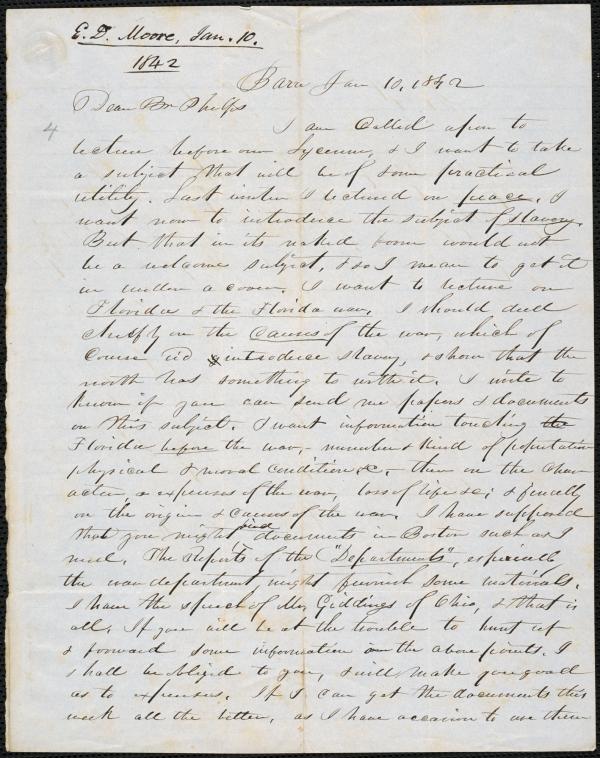 E. D. Moore, Jan. 10.
1842
Barre Jan 10, 1842
Dear Br Phelps
4
I am called upon to
lecture before our Lyceum, & I want to take
a subject that will be of some practical
utility. Last winter I lectured on peace. I
want now to introduce the subject of slavery.
But that in its naked form would not
be a welcome subject, & so I mean to get it
in under a cover. I want to lecture on
Florida & the Florida war. I should dwell
chiefly on the causes of the war, which of
course introduce slavery, & show that the
north has something to do with it. I write to
know if you can send me papers & documents
on this subject. I want information touching the
Florida before the war,- number & kind of population
physical & moral condition &c,- then on the char-
acter, & expenses of the war, loss of life &c; & finally
on the origin & causes of the war. I have supposed
that you might find documents in Boston such as I
need. The reports of the "Departments", especially
the war department might furnish some materials.
I have the speech of Mr Giddings of Ohio, & that is
all. If you will be at the trouble to hunt up
& forward some information on the above points. I
shall be obliged to you, & will make you good
as to expenses. If I can get the documents this
week all the better, as I have occasion to use them